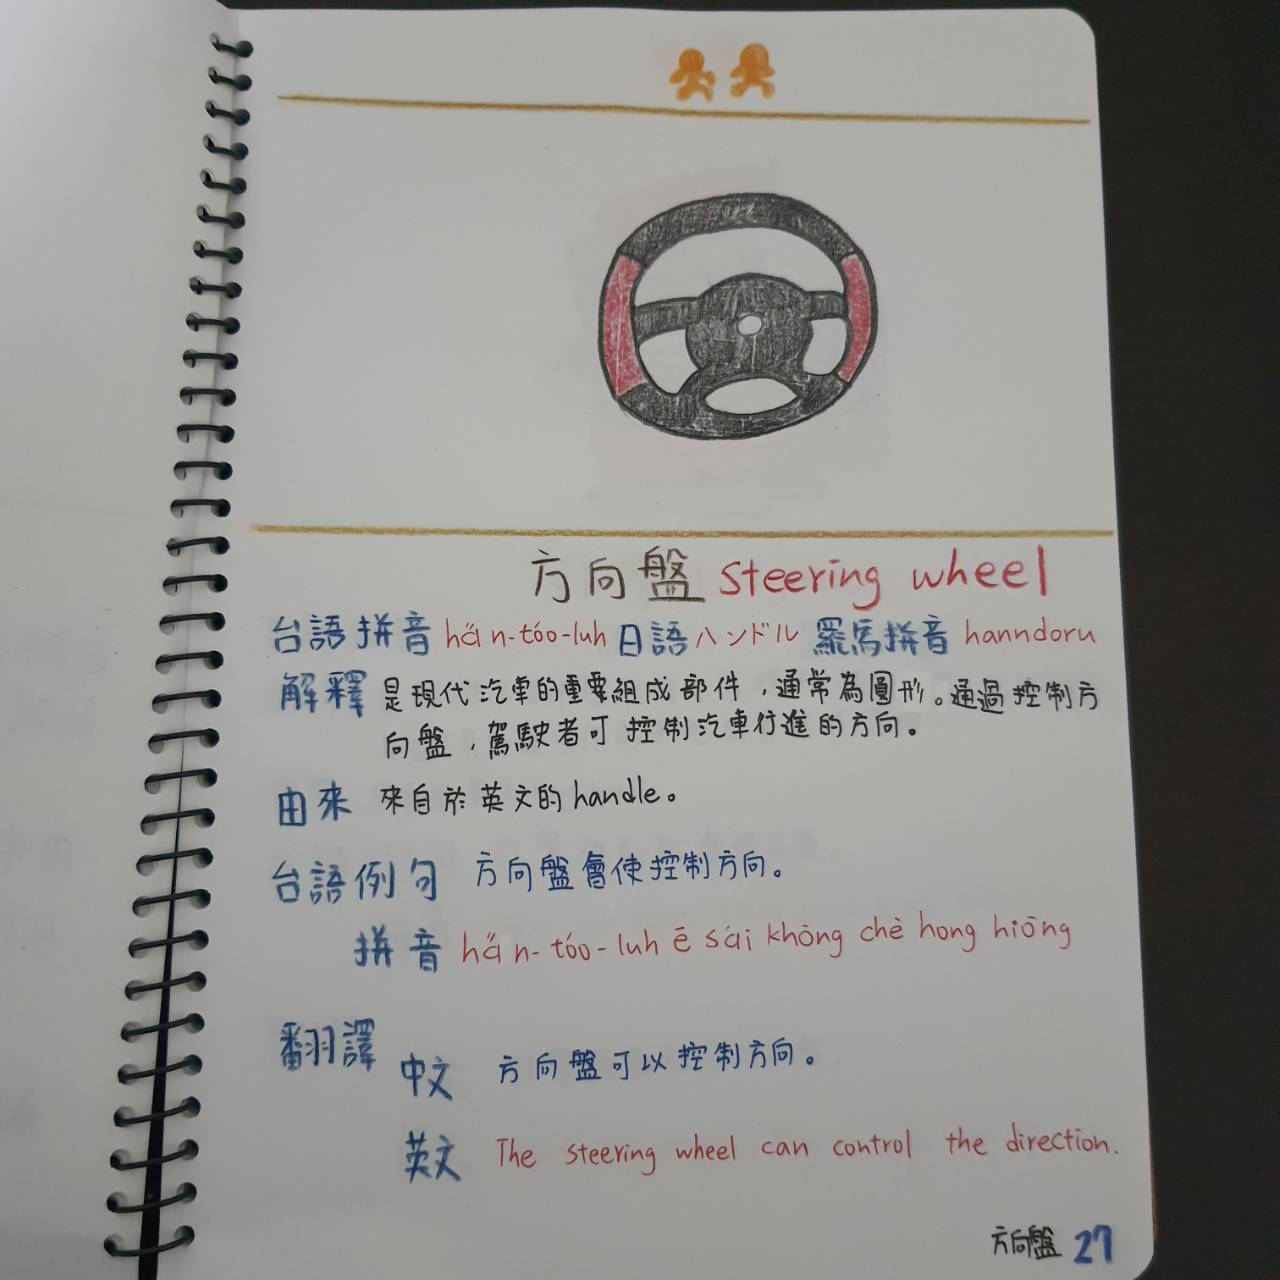 方向盤 steering wheel
台語拼音 ha̋n-tóo-luh 日語 ハンドル 羅馬拼音 hanndoru
解釋 是現代汽車的重要組成部件，通常為圓形。通過控制方
向盤，駕駛者可控制汽車行進的方向。
由來 來自於英文的handle。
台語例句 方向盤會使控制方向。
拼音 ha̋n-tóo-luh ē sái khòng chè hong hiòng
翻譯 中文 方向盤可以控制方向。
英文 The steering wheel can control the direction.
方向盤 27